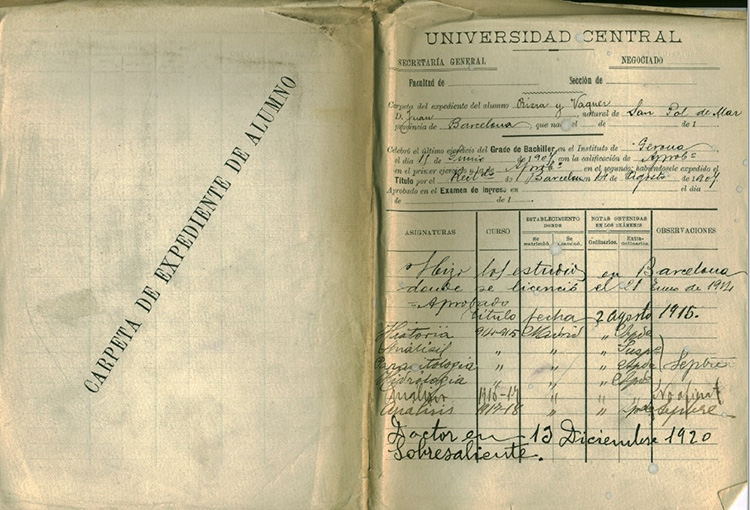 CARPETA DE EXPEDIENTE DE ALUMNO
UNIVERSIDAD CENTRAL
SECRETARÍA GENERAL NEGOCIADO
Facultad de Sección de
Carpeta del expediente del alumno Riera y Vaquer
D. Juan natural de San Pol de Mar
provincia de Barcelona, que nació el de de 1
Celebró el último ejercicio del Grado de Bachiller en el Instituto de Gerona
el día 15 Junio de 1907 con la calificación de Aprobº
en el primer ejercicio y de Aprobº en el segundo, habiéndosele expedido el
Título por el Rect. de Barcelona en de Agosto de 1907
Aprobado en el Examen de Ingreso en el día
de de 1
ASIGNATURAS CURSO ESTABLECIMIENTO DONDE NOTAS OBTENIDAS EN LOS EXÁMENES OBSERVACIONES
Se matriculó. Se examinó. Ordinarios. Extraordinarios.
Hizo los estudios en Barcelona
donde se licenció el 21 Enero de 1914
Aprobado
título fecha 2 agosto 1915.
Historia 914-915 Madrid " Apdo
Análisis " " " Suspº
Parasitología " " " Apdo Septbre
Hidrología " " " Apdo
Análisis 1916-17 " " No
Análisis 1917-18 " " Septbre
Doctor en 13 Diciembre 1920
Sobresaliente.